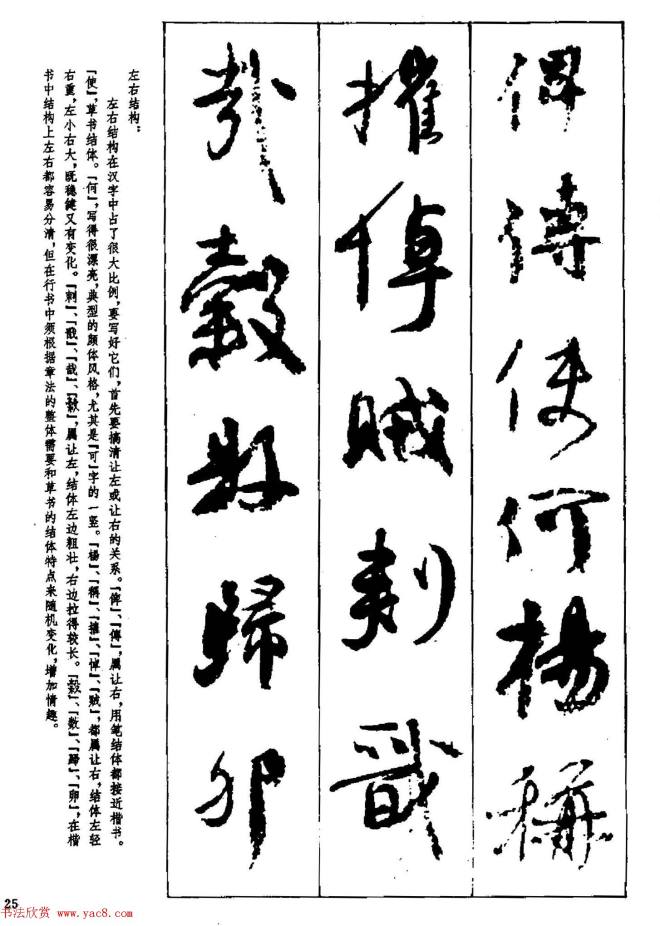 俾傳使何楊稱
悼賊刺戩
穀數歸卯
左右结构：
左右结构在汉字中占了很大比例，要写好它们，首先要搞清让左或让右的关系。『俾』、『傳』，属让右，用笔结体都接近楷书。
『使』，草书结体。『何』，写得很漂亮，典型的颜体风格，尤其是『可』字的一竖。『楊』、『稱』、『悼』、『贼』，都属让右，结体左轻
右重，左小右大，既稳健又有变化。『刺』、『戬』、属让左，结体左边粗壮，右边拉得较长。『数』、『歸』、『卵』，在楷
书中结构上左右都容易分清，但在行书中须根据章法的整体需要和草书的结体特点来随机变化，增加情趣。
25
书法欣赏 www.yac8.com